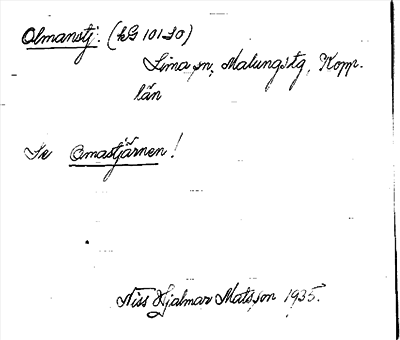 Olmanstj. (kG 101-30)
Lima sn, Malungs tg, Kopp.
län
Se Omastjärnen!
Niss Hjalmar Matsson 1935.